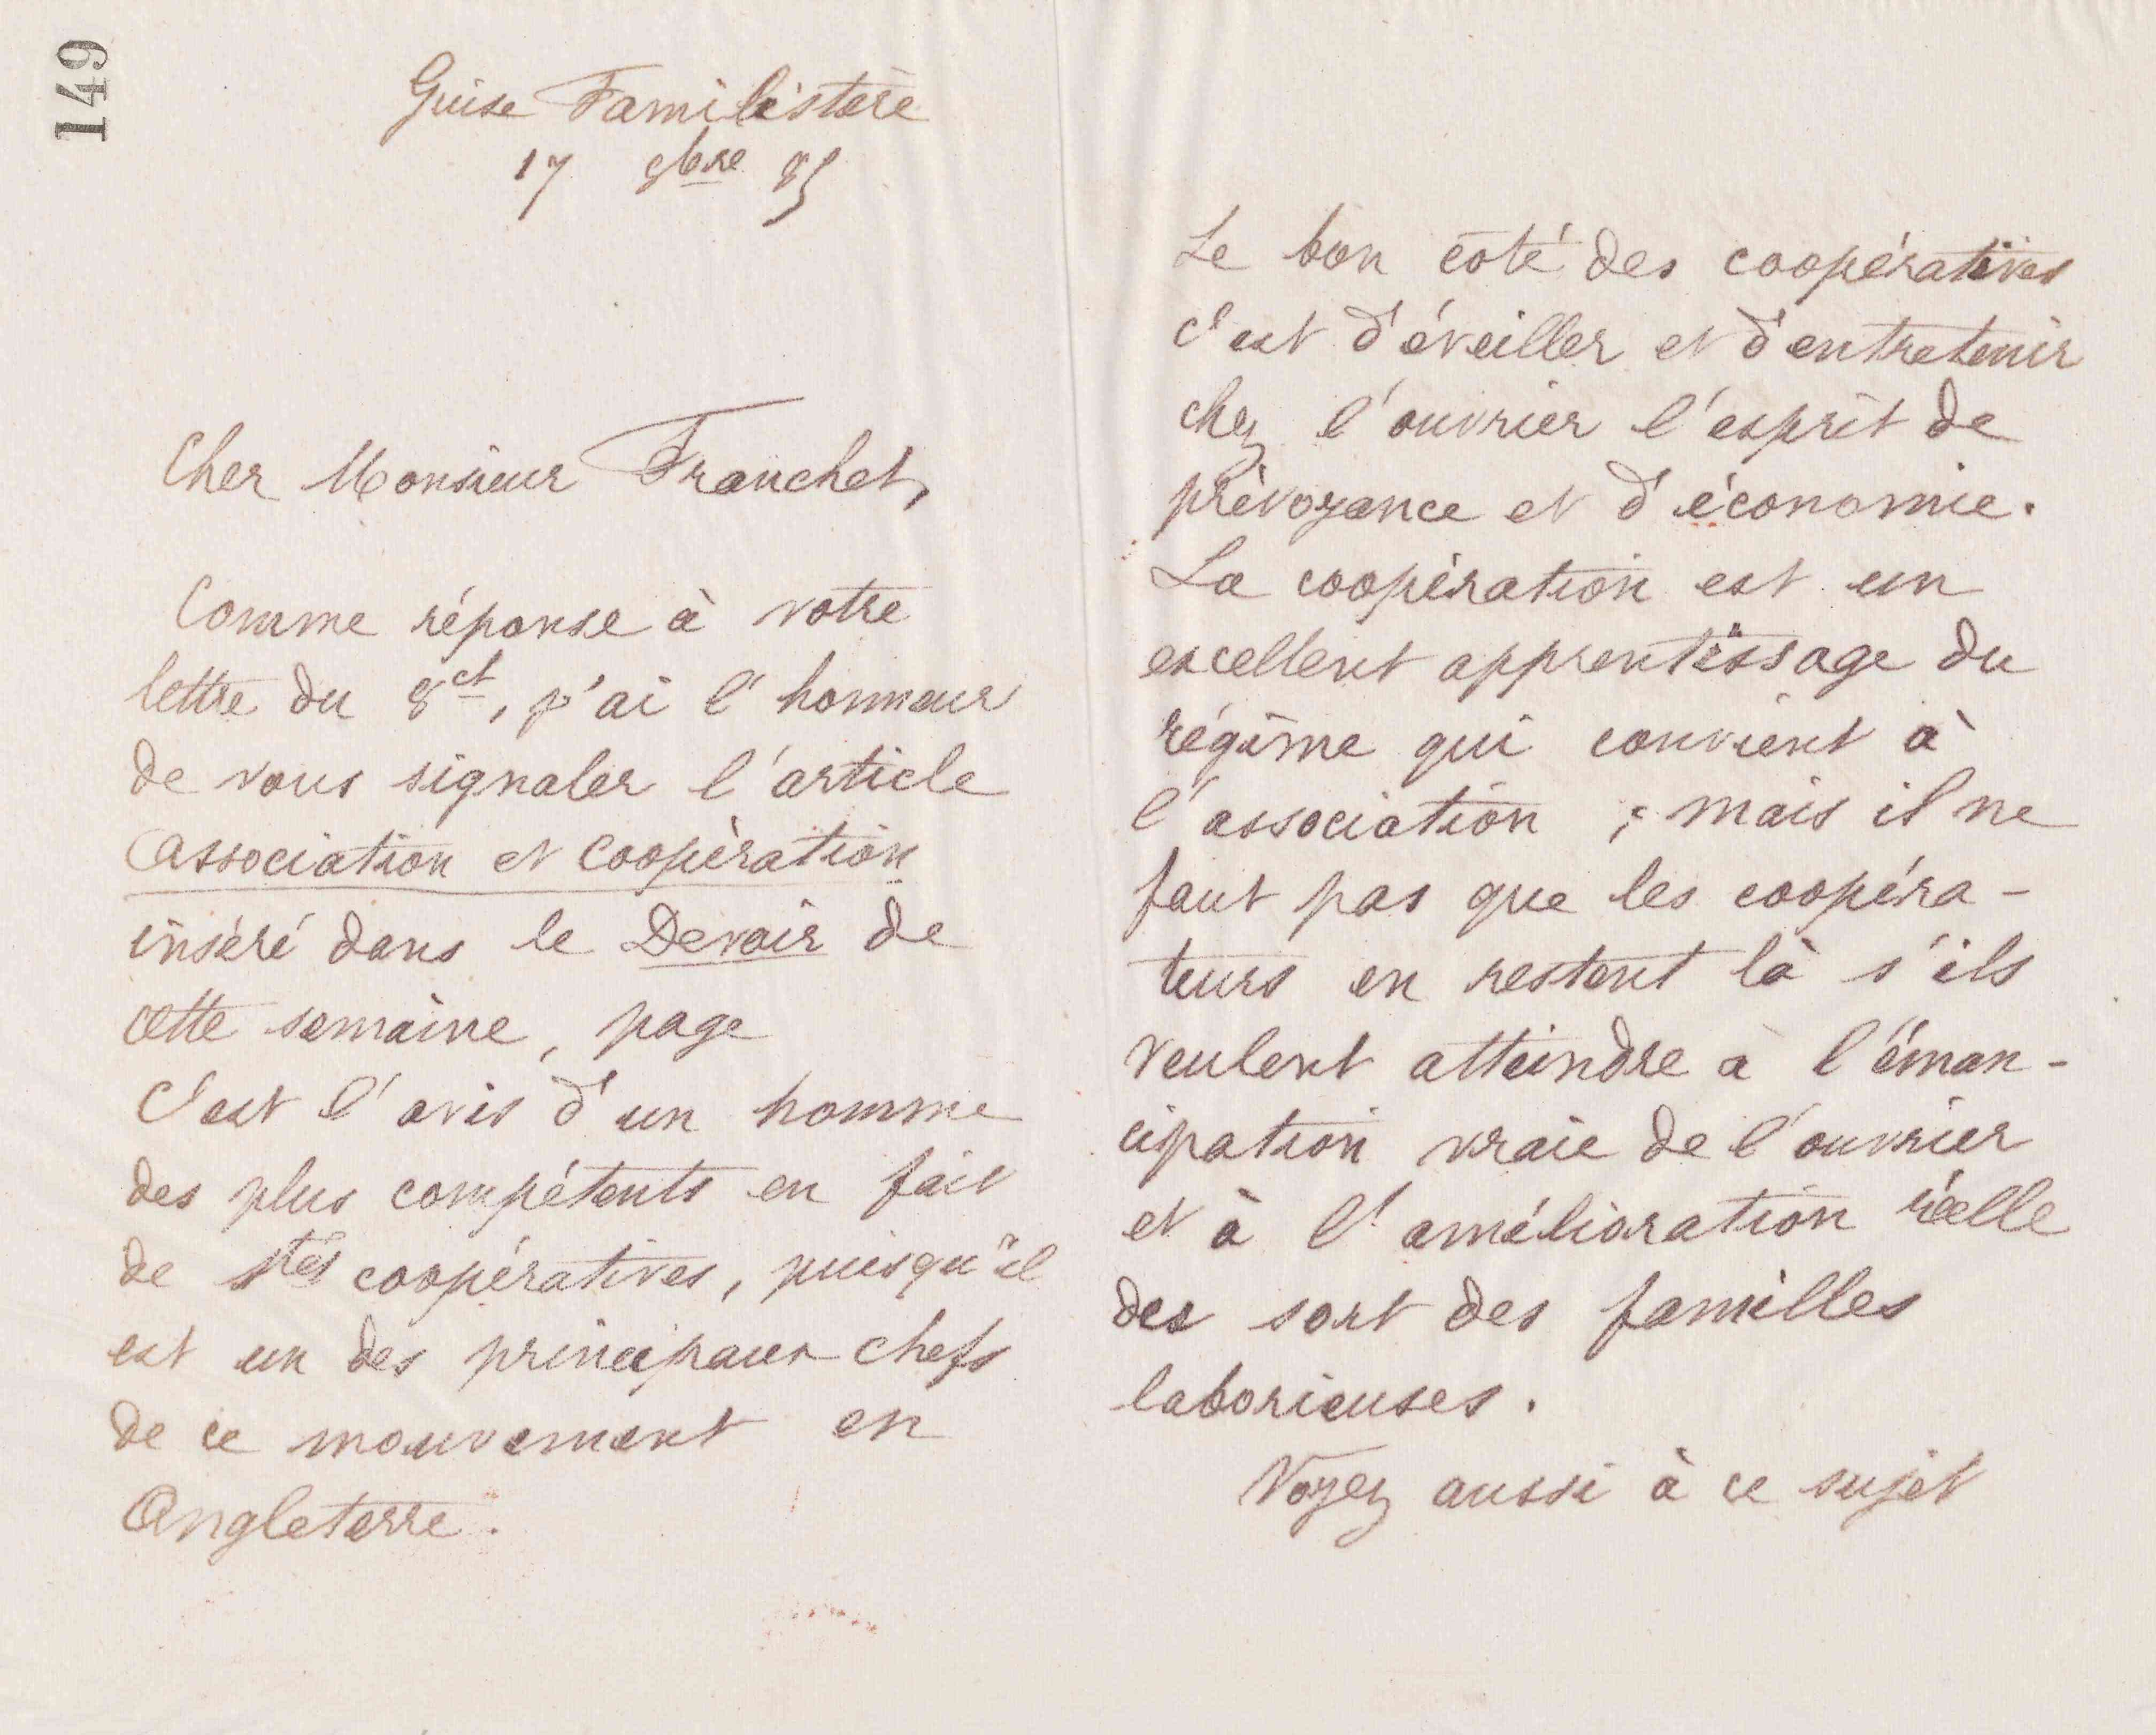 149
Guise Familistère
17 8bre 85
Cher Monsieur Franchet,
Comme réponse à votre
lettre du 8 ct, j'ai l'honneur
de vous signaler l'article
Association et Coopération
inséré dans le Devoir de
cette semaine, page
C'est l'avis d'un homme
des plus compétents en fait
de Stés coopératives, puisqu'il
est un des principaux chefs
de ce mouvement en
Angleterre.
Le bon côté des coopératives
c'est d'éveiller et d'entretenir
chez l'ouvrier l'esprit de
prévoyance et d'économie.
La coopération est un
excellent apprentissage du
régime qui convient à
l'association ; mais il ne
faut pas que les coopéra-
teurs en restent là s'ils
veulent atteindre à l'éman-
cipation vraie de l'ouvrier
et à l'amélioration réelle
des sort des familles
laborieuses.
Voyez aussi à ce sujet